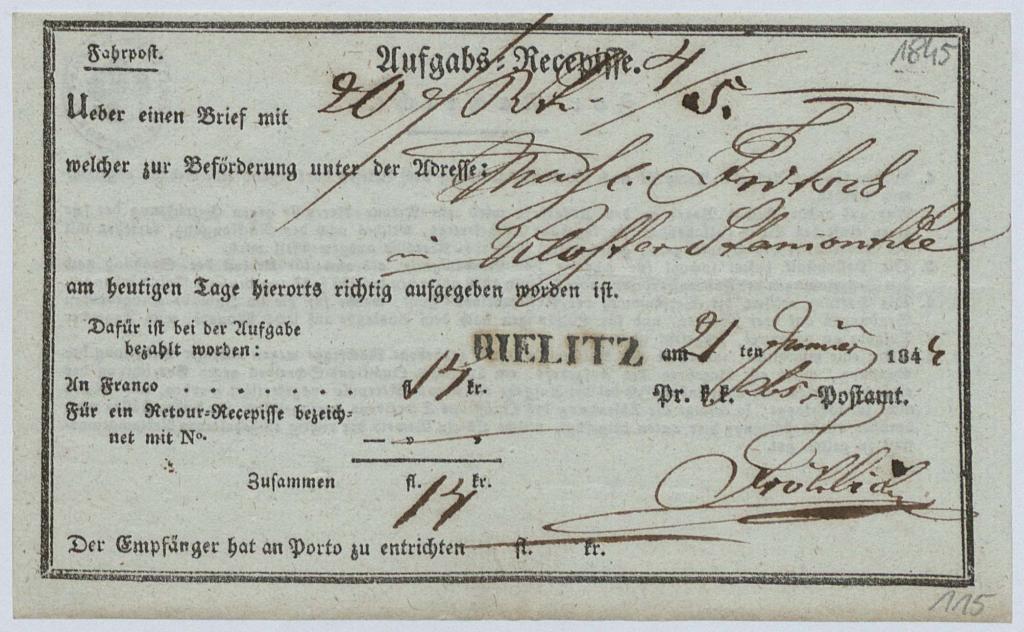 1845
Fahrpost. Aufgabs-Recepisse. 4/5.
Ueber einen Brief mit 20
welcher zur Beförderung unter der Adresse: Fritsch
in Kloster
am heutigen Tage hierorts richtig aufgegeben worden ist.
Dafür ist bei der Aufgabe
bezahlt worden:
BIELITZ am 21 ten Januar 184
An Franco . . . . . . . fl. 14 kr. Pr. k. k. Abs. Postamt.
Für ein Retour-Recepisse bezeich-
net mit No. — „ „
Zusammen fl. 14 kr. Fröhlich
Der Empfänger hat an Porto zu entrichten fl. kr.
115